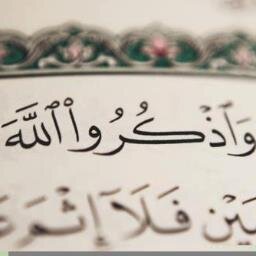 وَٱذۡكُرُواْ ٱللَّهَ
يۡنِ فَلَآ إِثۡمَ عَ